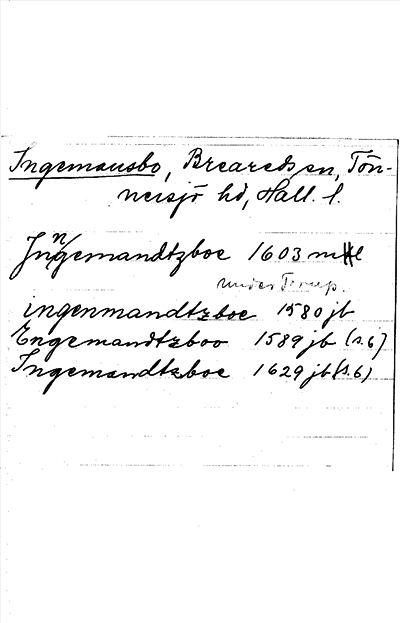 Ingemansbo, Breareds sn, Tön-
nersjö hd, Hall. l.
Jngemandtzboe 1603 mtl
under Torup.
ingenmandtzboe 1580 jb
Engemandtzboo 1589 jb (s.6)
Ingemandtzboe 1629 jb (s.6)